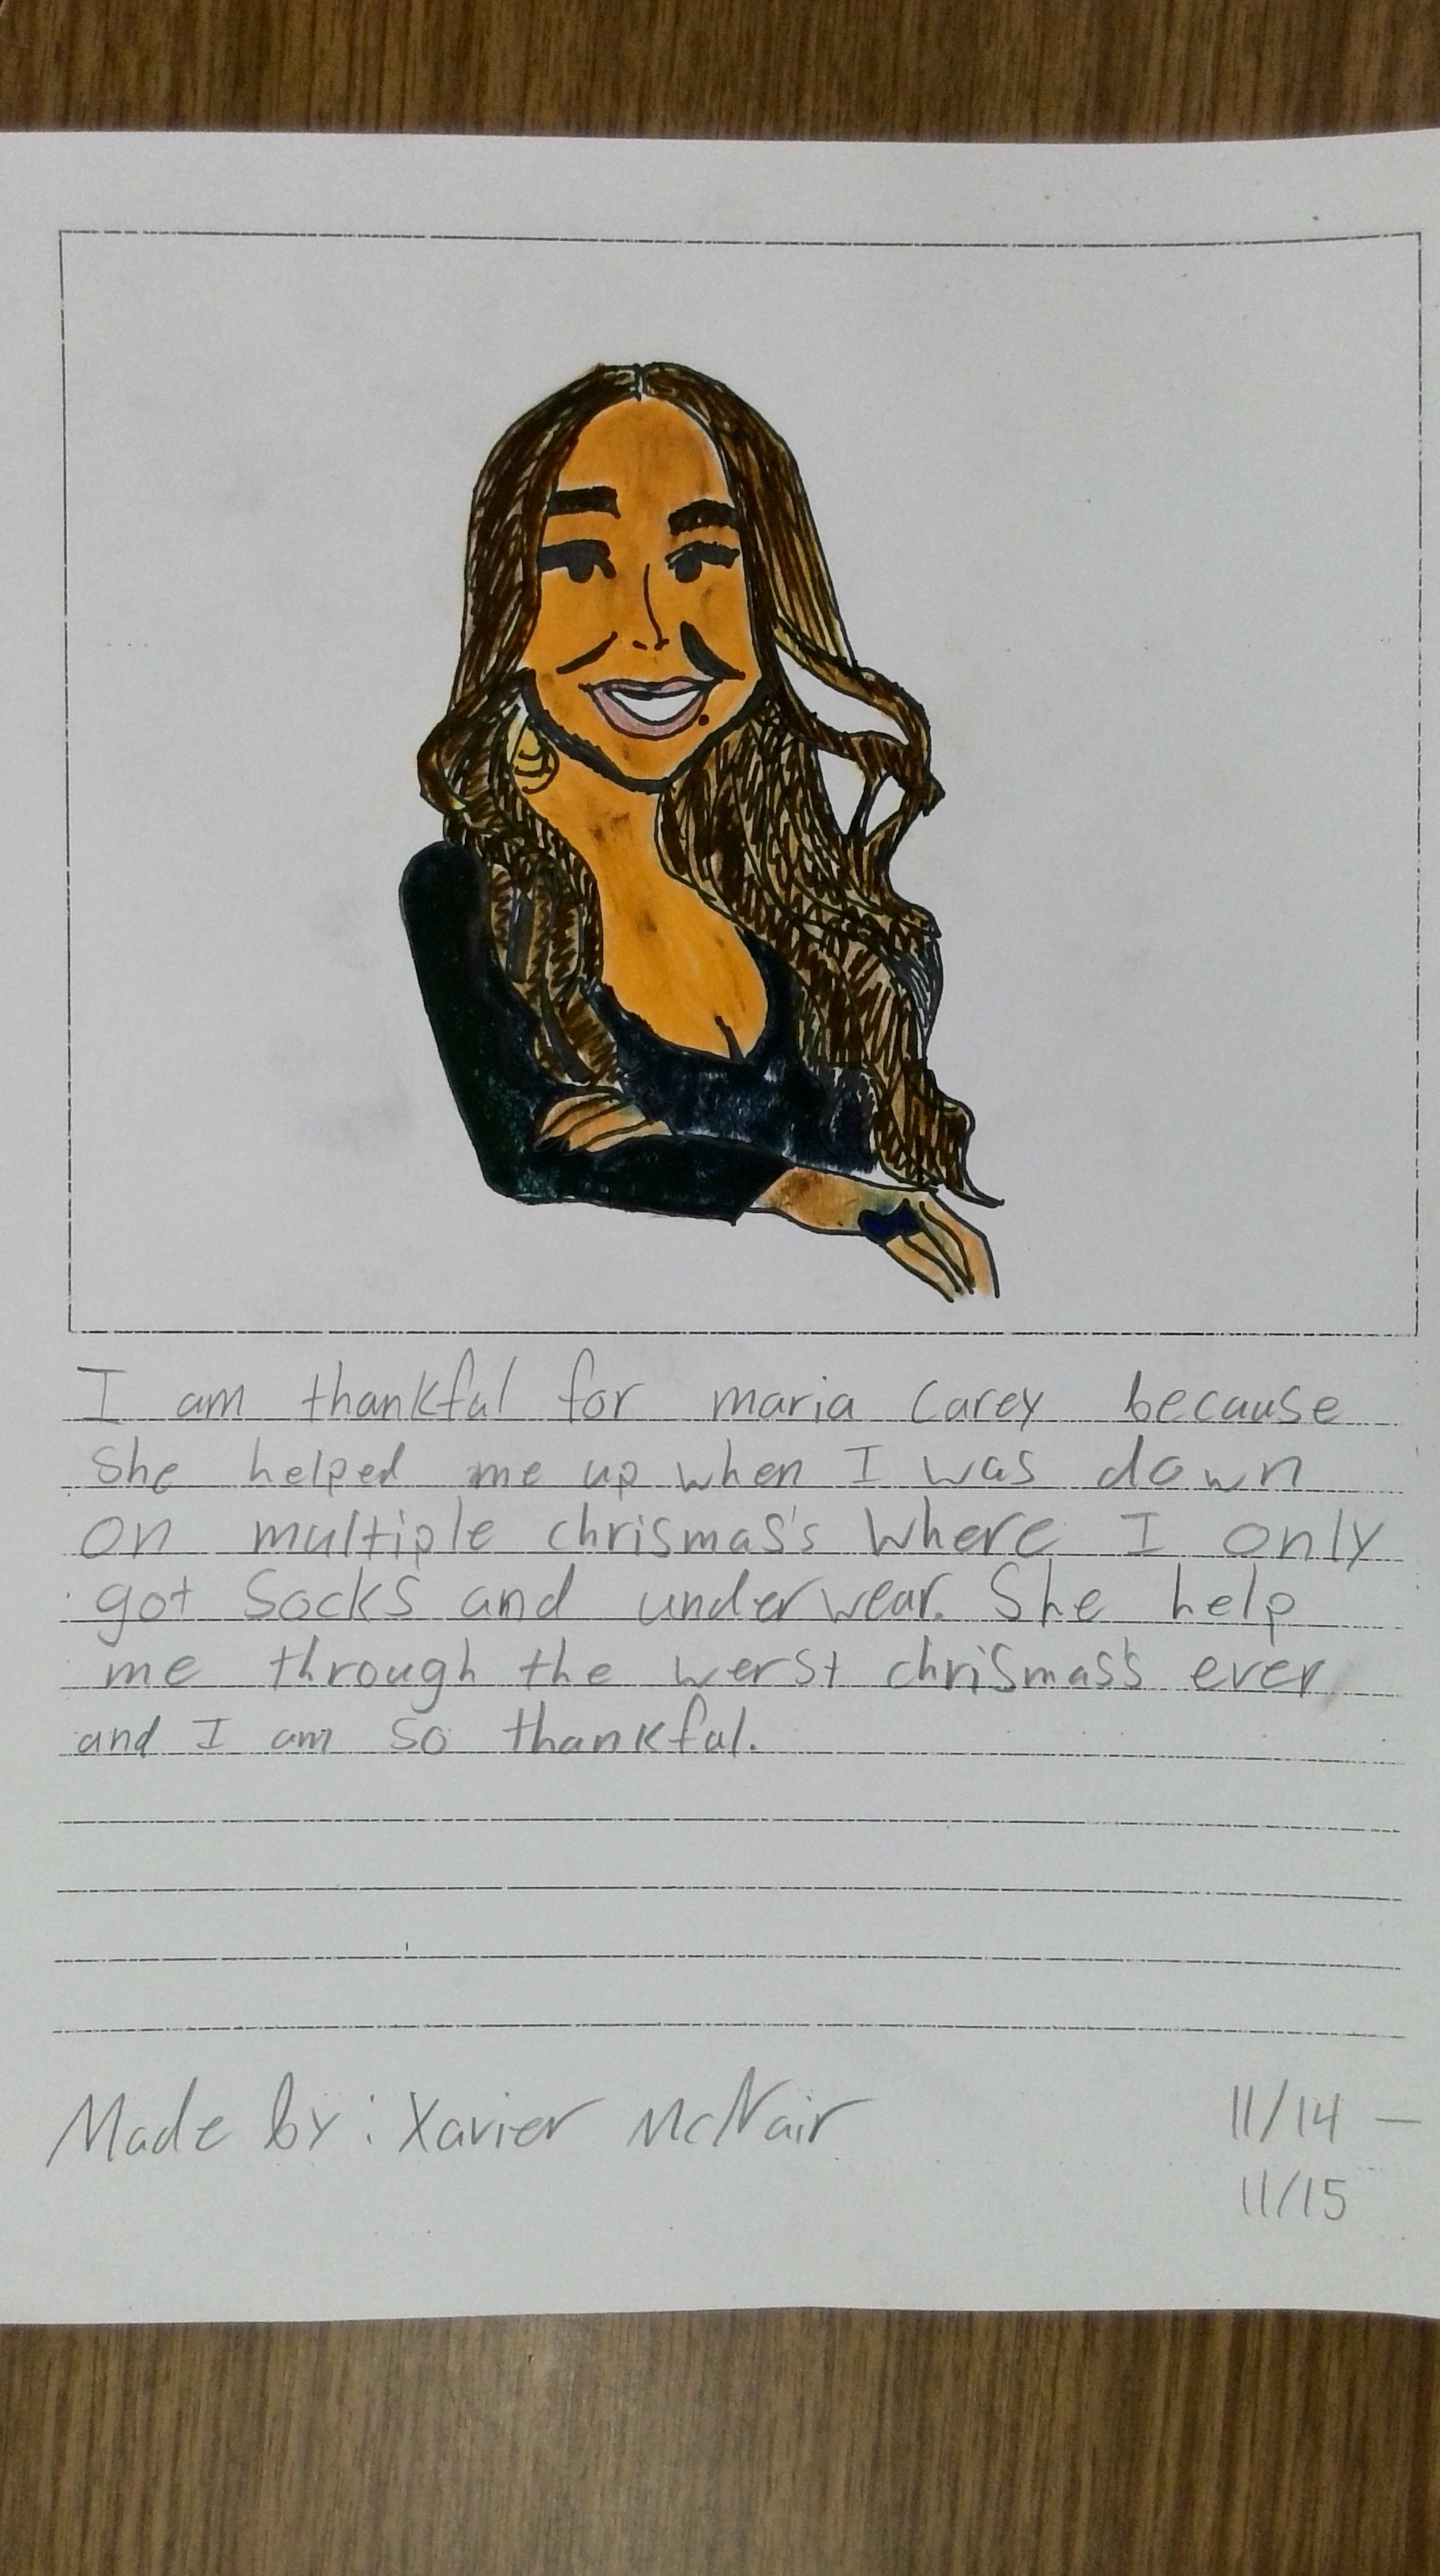 I am thankful for maria Carey because
She helped me up when I was down
on multiple chrismas's where I only
got Socks and underwear. She help
me through the werst chrismas's ever
and I am so thankful.
Made by: Xavier McNair
11/14 —
11/15